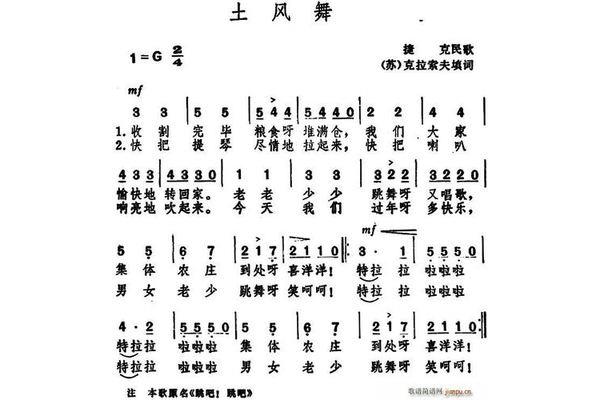 土风舞
1=G 2/4
捷 克民歌
(苏)克拉索夫填词
mf
3 3 | 5 5 | 5 4 4 | 5 4 4 0 | 2 2 | 4 4 |
1. 收割 完毕 粮食呀 堆满仓, 我们 大家
2. 快把 提琴 尽情地 拉起来, 快把 喇叭
4 3 3 | 4 3 3 0 | 1 1 | 3 3 | 3 2 2 | 3 2 2 0 |
愉快地 转回家。 老老 少少 跳舞呀 又唱歌,
响亮地 吹起来。 今天 我们 过年呀 多快乐,
mf
5 5 | 6 7 | 2 1 7 | 2 1 1 0 :‖: 3 · 1 | 5 5 5 0 |
集体 农庄 到处呀 喜洋洋! 特拉拉 啦啦啦
男女 老少 跳舞呀 笑呵呵! 特拉拉 啦啦啦
4 · 2 | 5 5 5 0 | 5 5 | 6 7 | 2 1 7 | 2 1 1 0 :‖
特拉拉 啦啦啦 集体 农庄 到处呀 喜洋洋!
特拉拉 啦啦啦 男女 老少 跳舞呀 笑呵呵!
注 本歌原名《跳吧! 跳吧》
歌谱简谱网
jianpu.cn